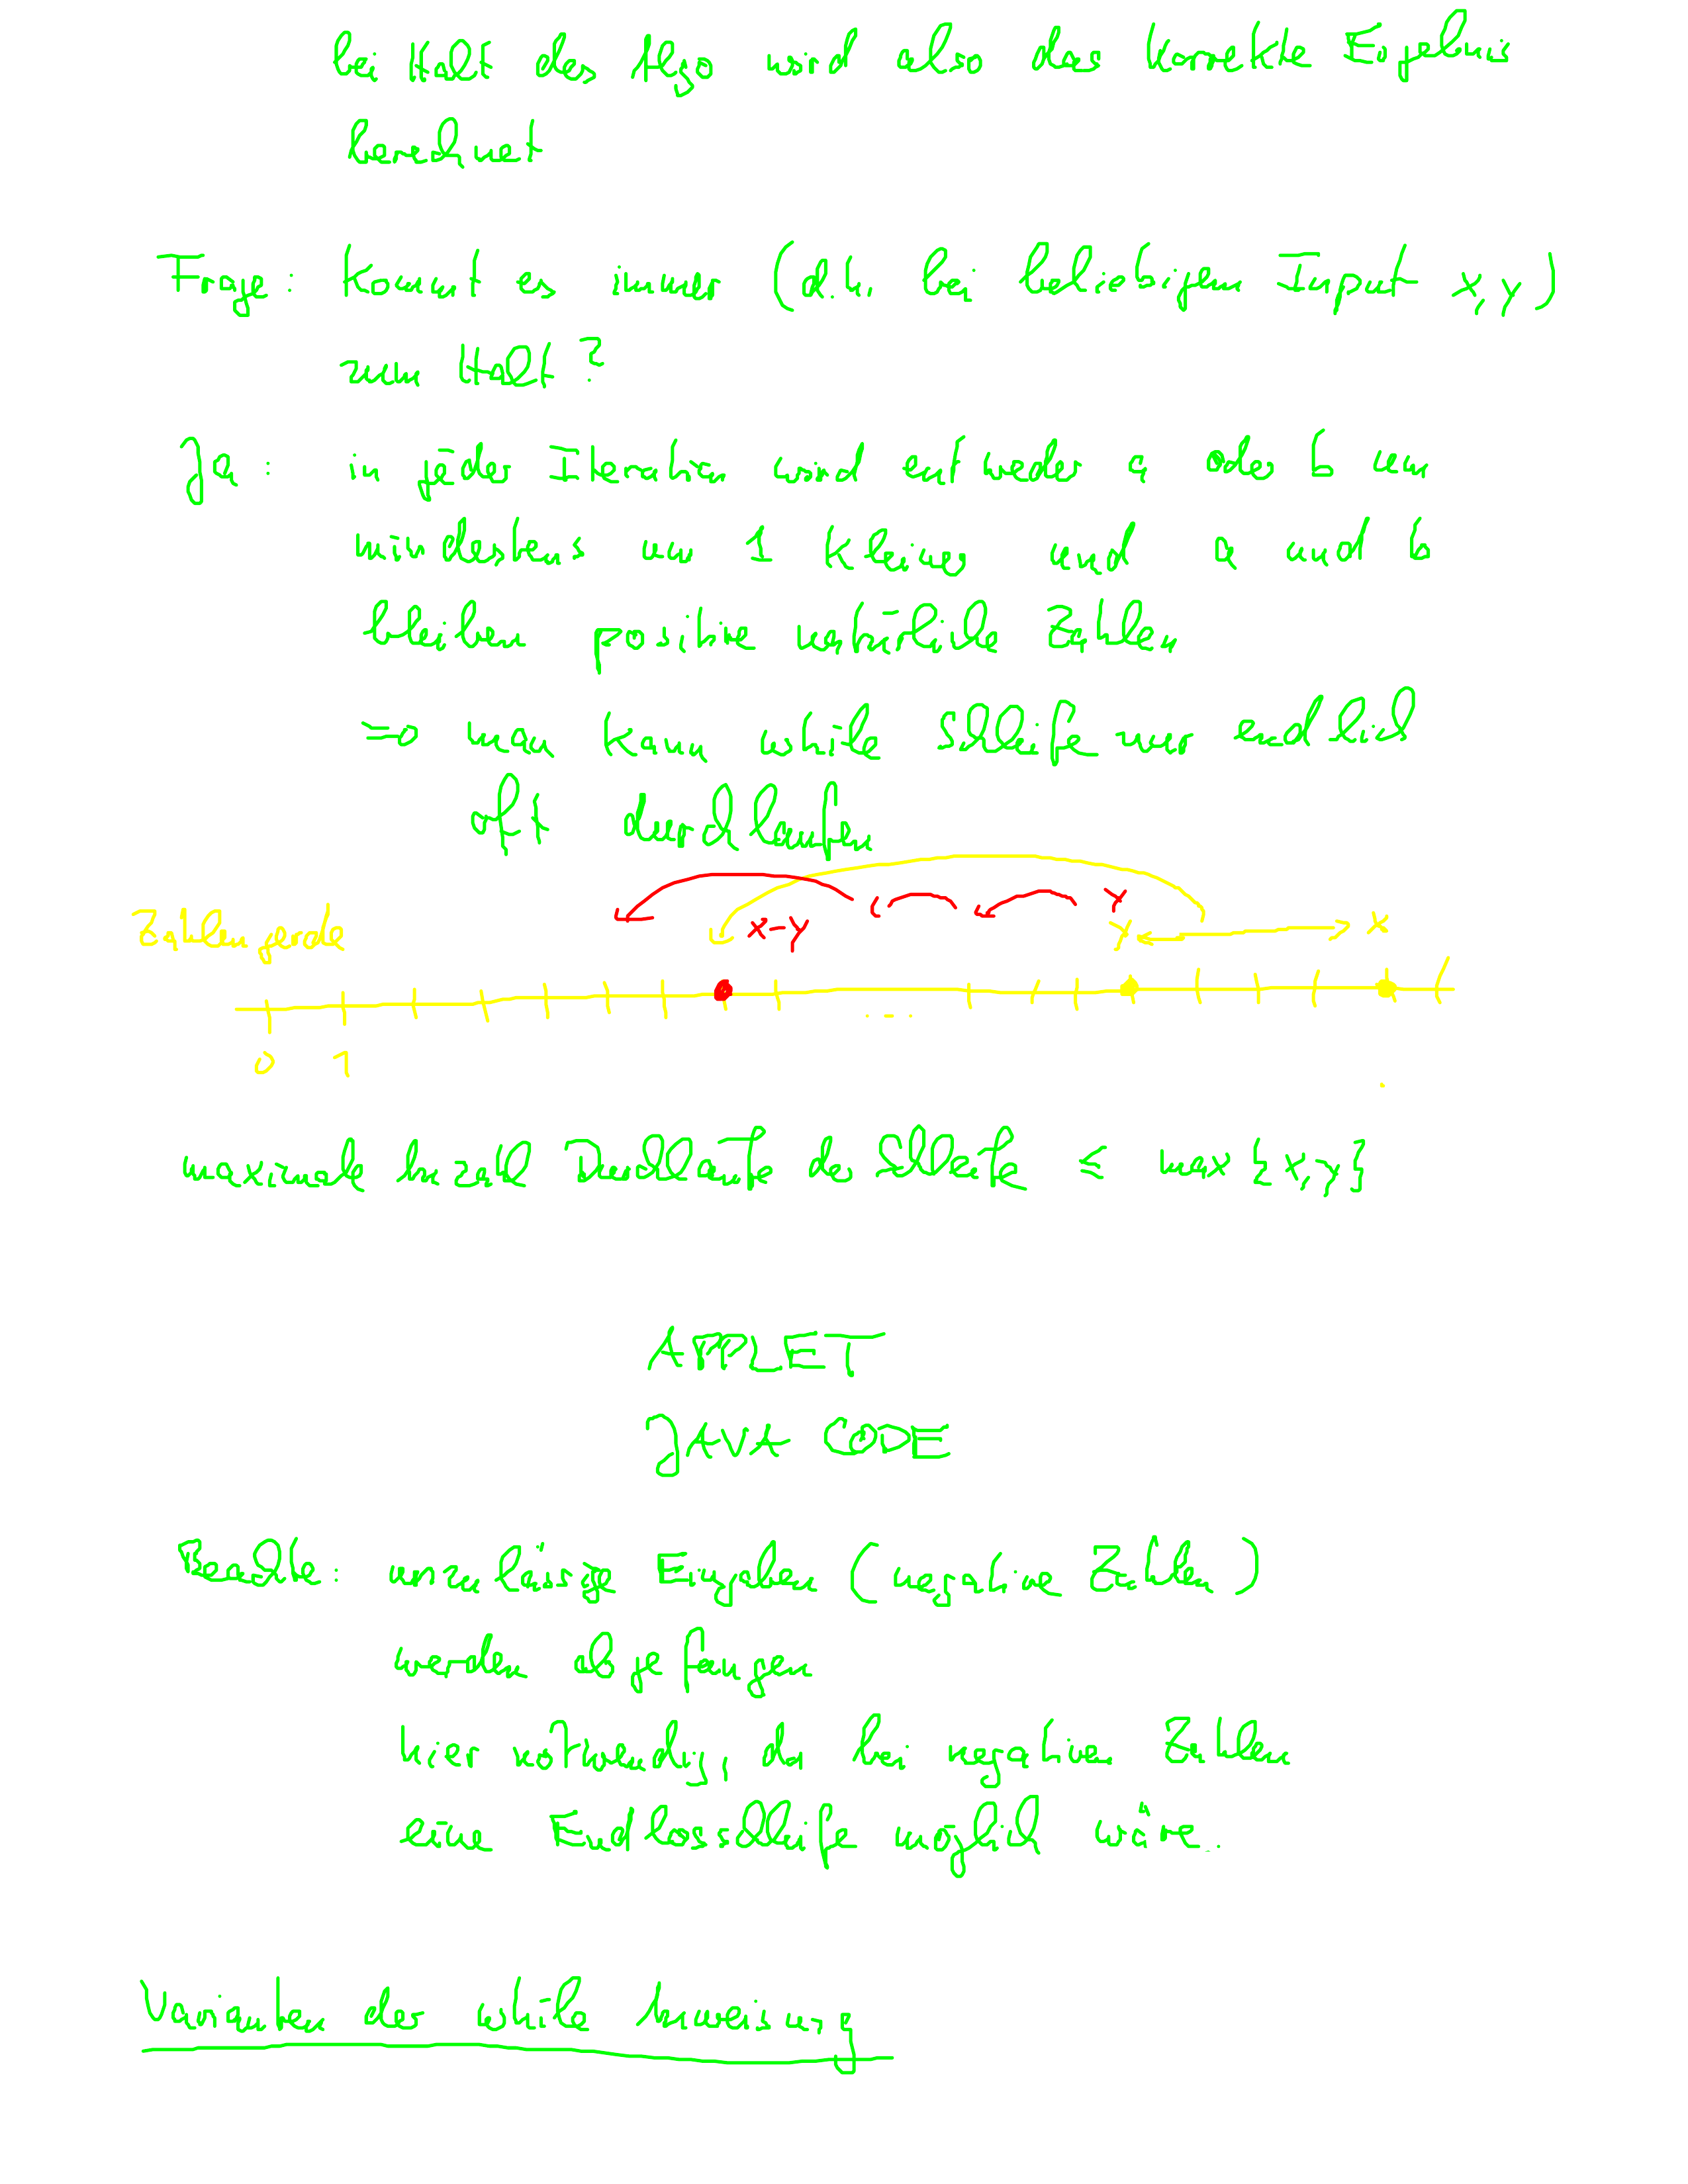 bei Halt des Algo wird also das korrekte Ergebnis
berechnet
Frage: Kommt es immer (d.h. bei beliebigem Input x,y)
zum Halt?
Ja: in jeder Iteration wird entweder a oder b um
mindestens um 1 kleiner und a und b
bleiben positive natürliche Zahlen
=> man kann while Schleife nur endlich
oft durchlaufen
Zahlengerade x-y y y x
...
0 1
maximale Anzahl Durchläufe der Schleife ≤ max {x,y}
APPLET
JAVA CODE
Beachte: unzulässige Eingaben (negative Zahlen)
werden abgefangen
hier notwendig, da bei negativen Zahlen
eine Endlosschleife möglich wäre.
Varianten der while Anweisung